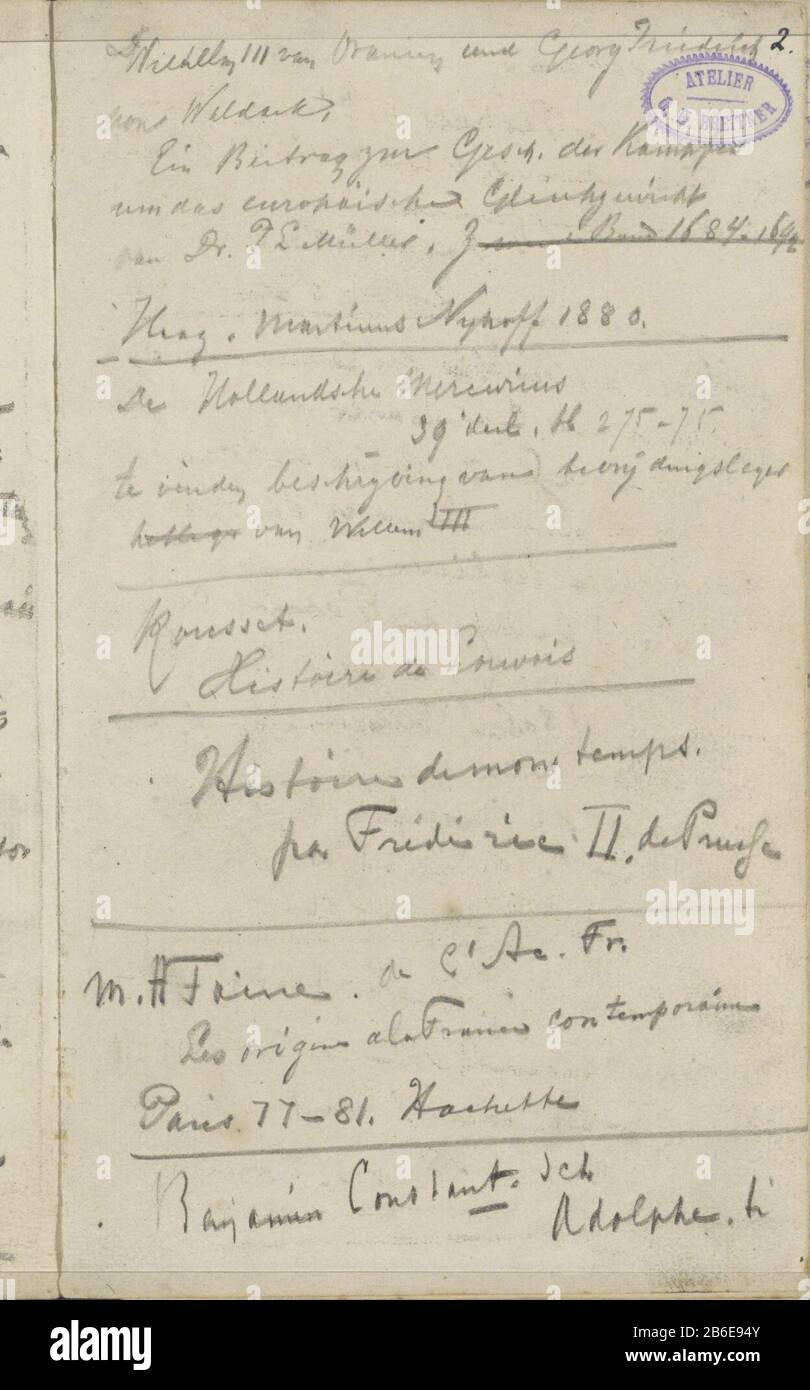 Wilhelm III van Oranien und Georg Friedrich 2.
ATELIER
G. H. BREITNER
von Waldeck.
Ein Beitrag zur Gesch. der Kampfe
um das europäische Gleichgewicht
van Dr. P L Müller. Band 1684-1692
Haag. Martinus Nyhoff 1880.
De Hollandsche Mercurius
39 deel, bl 275-75.
te vinden beschrijving van bevrijdingsleger
van Willem III
Rousset.
Histoire de Louvois
Histoire de mon temps.
par Frédéric II. de Prusse
M. H Taine. de l'Ac. Fr.
Les origine de la France contemporaine
Paris 77-81. Hachette
Benjamin Constant. sch
Adolphe. ti
alamy
a
alamy
Image ID: 2B6E94Y
www.alamy.com